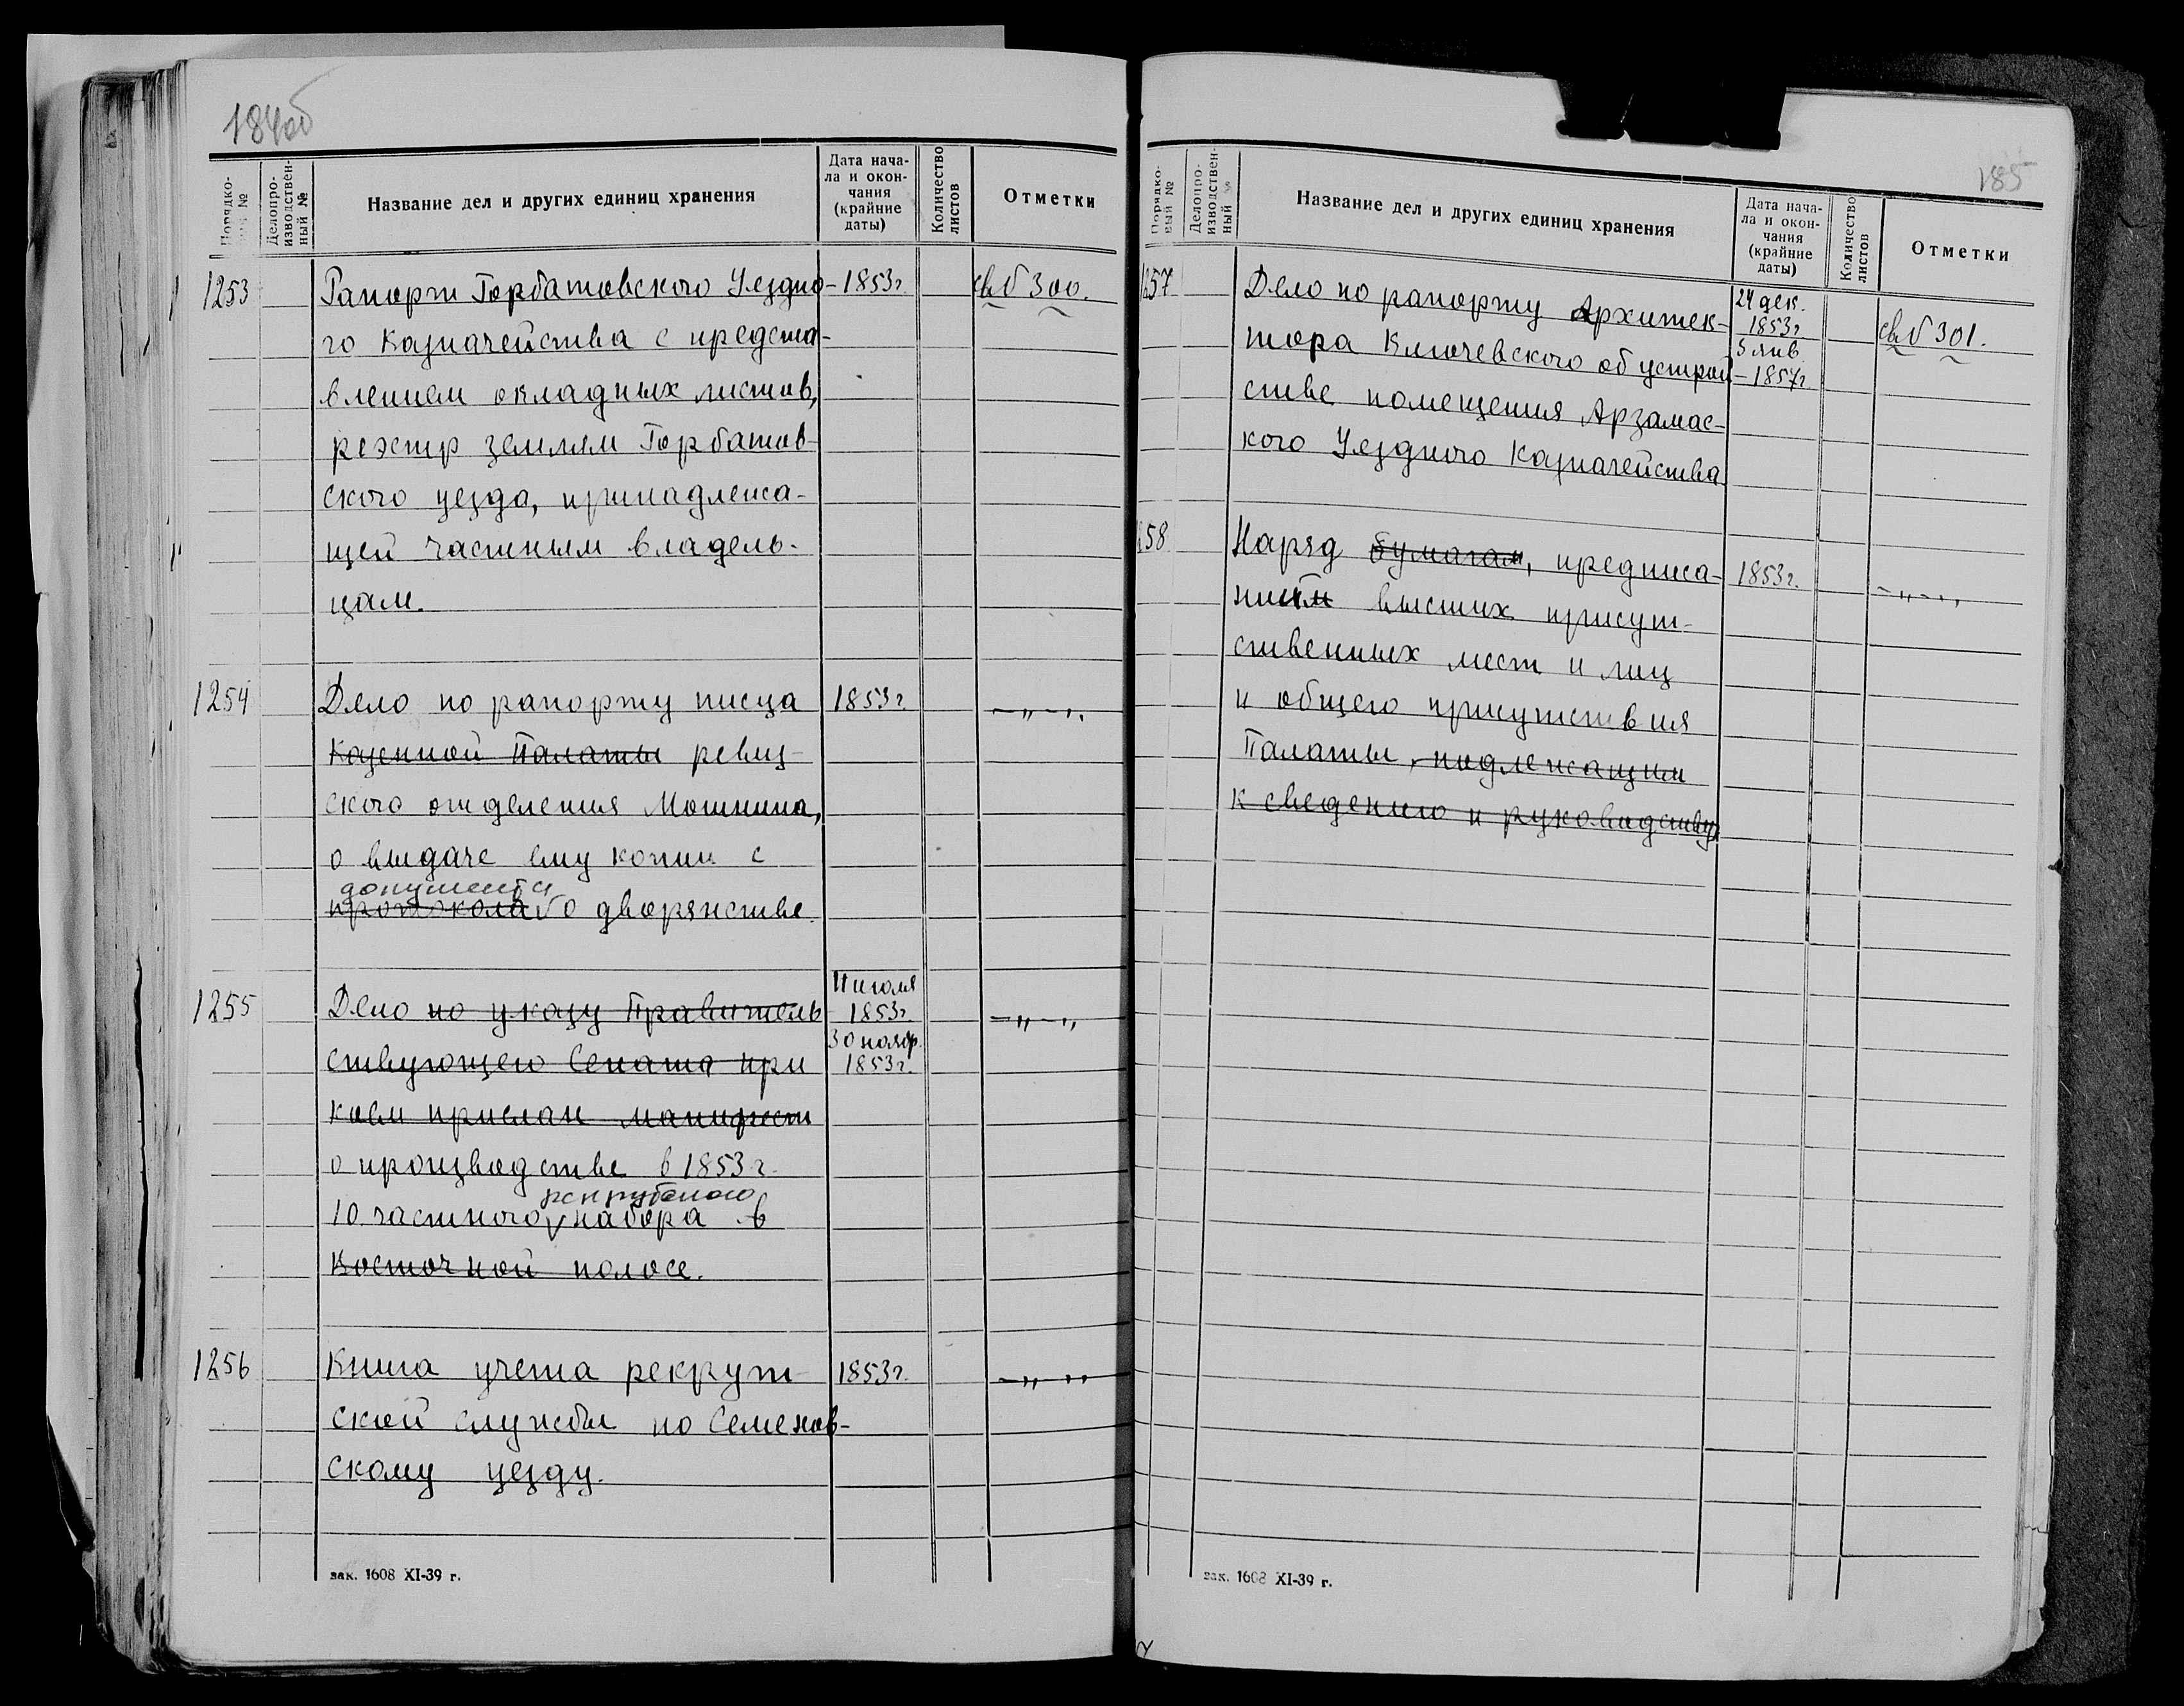 184об
Порядковый №
Делопроизводственный №
Название дел и других единиц хранения
Дата начала и окончания (крайние даты)
Количество листов
Отметки
1253 Рапорт Горбатовского Уездно- 1853г. свб 300.
го Казначейства с предста-
влением окладных листов,
реэстр землям Горбатов-
ского уезда, принадлежа-
щей частным владель-
цам.
1254 Дело по рапорту писца 1853г. -„-„
Казенной Палаты ревиз-
ского отделения Мошнина,
о выдаче ему копии с
документа
протокола о дворянстве.
11 июля
1255 Дело по указу Правитель 1853г. -„-„
30 нояб.
ствующего Сената при 1853г.
коем прислан манифест
о производстве в 1853 г.
рекрутского
10 частного набора в
Восточной полосе.
1256 Книга учета рекрут- 1853г. -„-„
ской службы по Семенов-
скому уезду.
зак. 1608 XI-39 г.
185
Порядковый №
Делопроизводственный №
Название дел и других единиц хранения
Дата начала и окончания (крайние даты)
Количество листов
Отметки
24 дек.
257 Дело по рапорту Архитек- 1853г. свб 301.
5 янв.
тора Ключевского об устрой- 1857г.
стве помещения Арзамас-
кого Уездного Казначейства
258 Наряд бумагам, предписа- 1853г. -„-„
ниям высших присут-
ственных мест и лиц
и общего присутствия
Палаты, подлежащим
к сведению и руководству.
зак. 1608 XI-39 г.